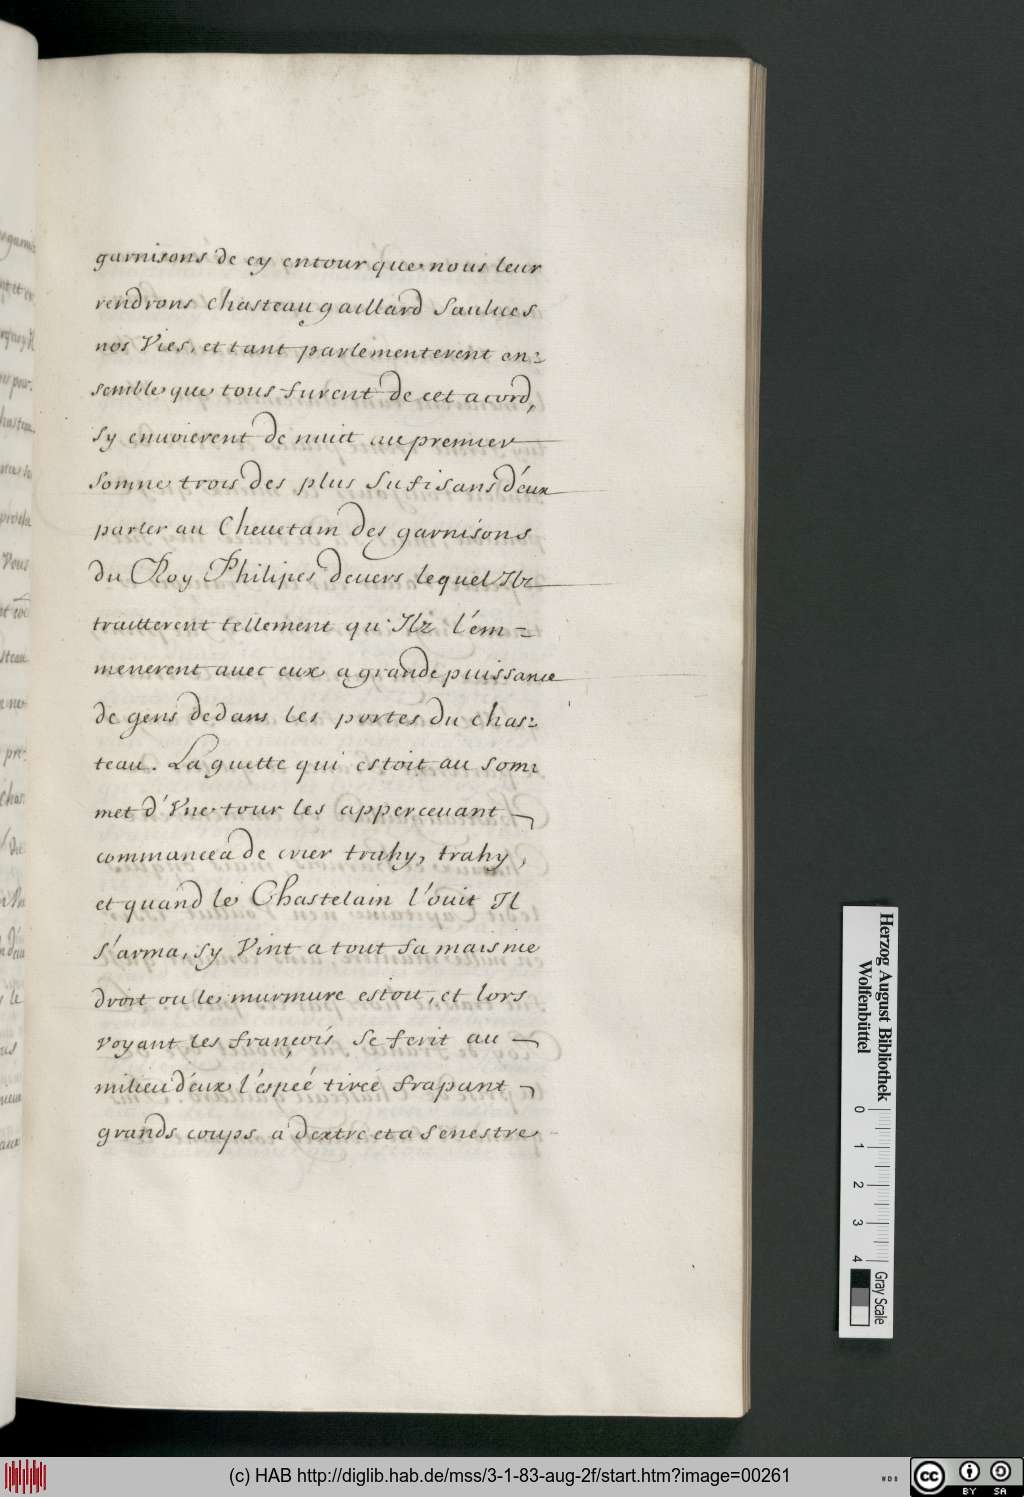 garnisons de cy entour que nous leur
rendrons chasteau gaillard Saulues
nos Vies, et tant parlementerent en=
semble que tous furent de cet acord,
sy enuoierent de nuict au premier
Somne trois des plus Sufisans d'eux
parler au Cheuetain des garnisons
du Roy Philipes deuers lequel Ilz
traitterent tellement qu'Ilz l'em=
menerent auec eux a grande puissance
de gens dedans les portes du chas=
teau. La guette qui estoit au som=
met d'Vne tour les apperceuant
commancea de crier trahy, trahy,
et quand le Chastelain l'ouit Il
s'arma, sy Vint a tout sa maisnie
droit ou le murmure estoit, et lors
voyant les françois se ferit au
milieu d'eux l'espeé tireé frapant
grands coups a dextre et a senestre
Herzog August Bibliothek
Wolfenbüttel
0 1 2 3 4
Gray Scale
(c) HAB http://diglib.hab.de/mss/3-1-83-aug-2f/start.htm?image=00261
cc BY SA